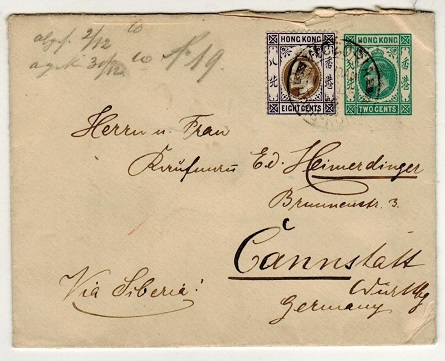 abgs. 2/12 10
ang. k 31/12 10 № 19.
HONG KONG
香港
八先
EIGHT CENTS
HONG KONG
香港
TWO CENTS
Herrn u. Frau
Kaufmann Ed. Heimerdinger
Brunnenstr. 3.
Cannstatt
Württbg
Germany
Via Siberia!